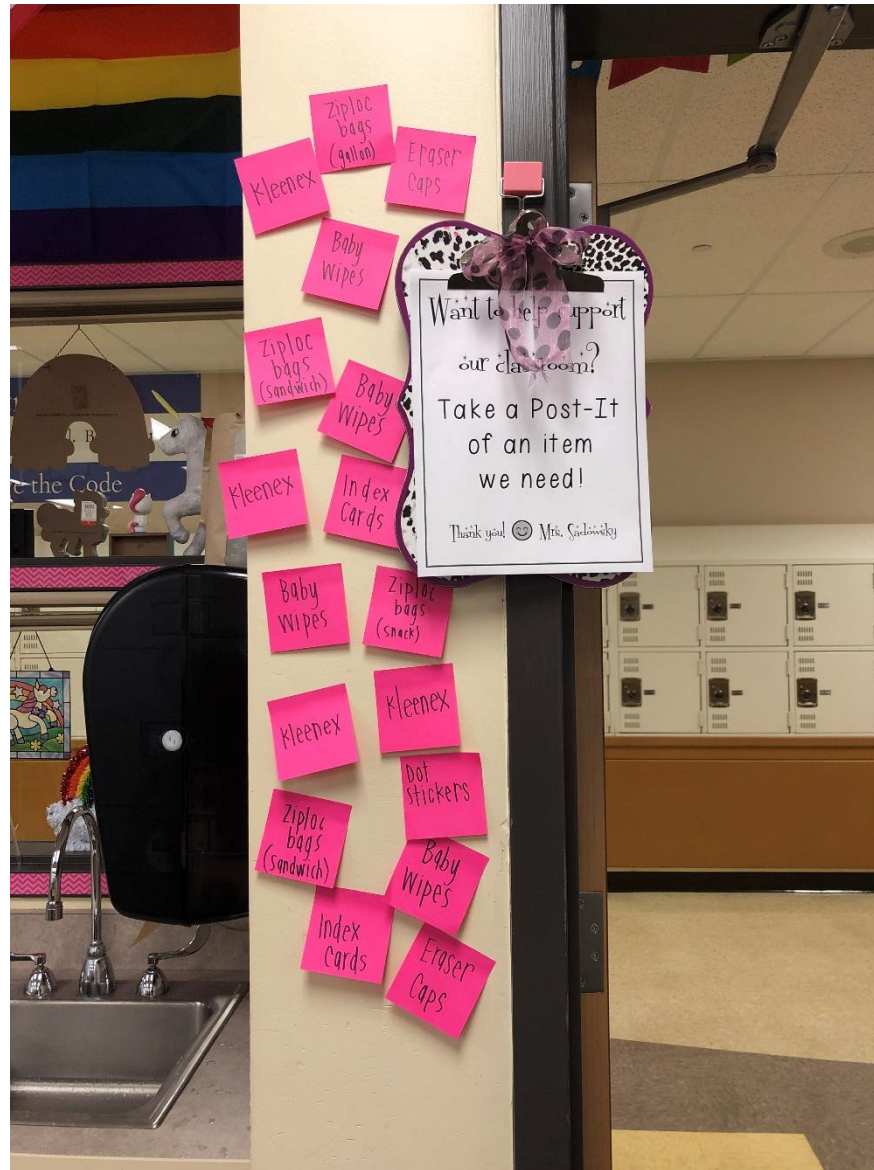 Ziploc
bags
(gallon)
Kleenex
Eraser
Caps
Baby
Wipes
Ziploc
bags
(sandwich)
Baby
Wipes
Kleenex
Index
Cards
Baby
Wipes
Ziploc
bags
(snack)
Kleenex
Kleenex
Dot
Stickers
Ziploc
bags
(sandwich)
Baby
Wipes
Index
Cards
Eraser
Caps
Want to help support
our classroom?
Take a Post-It
of an item
we need!
Thank you! Mrs. Sadowsky
the Code